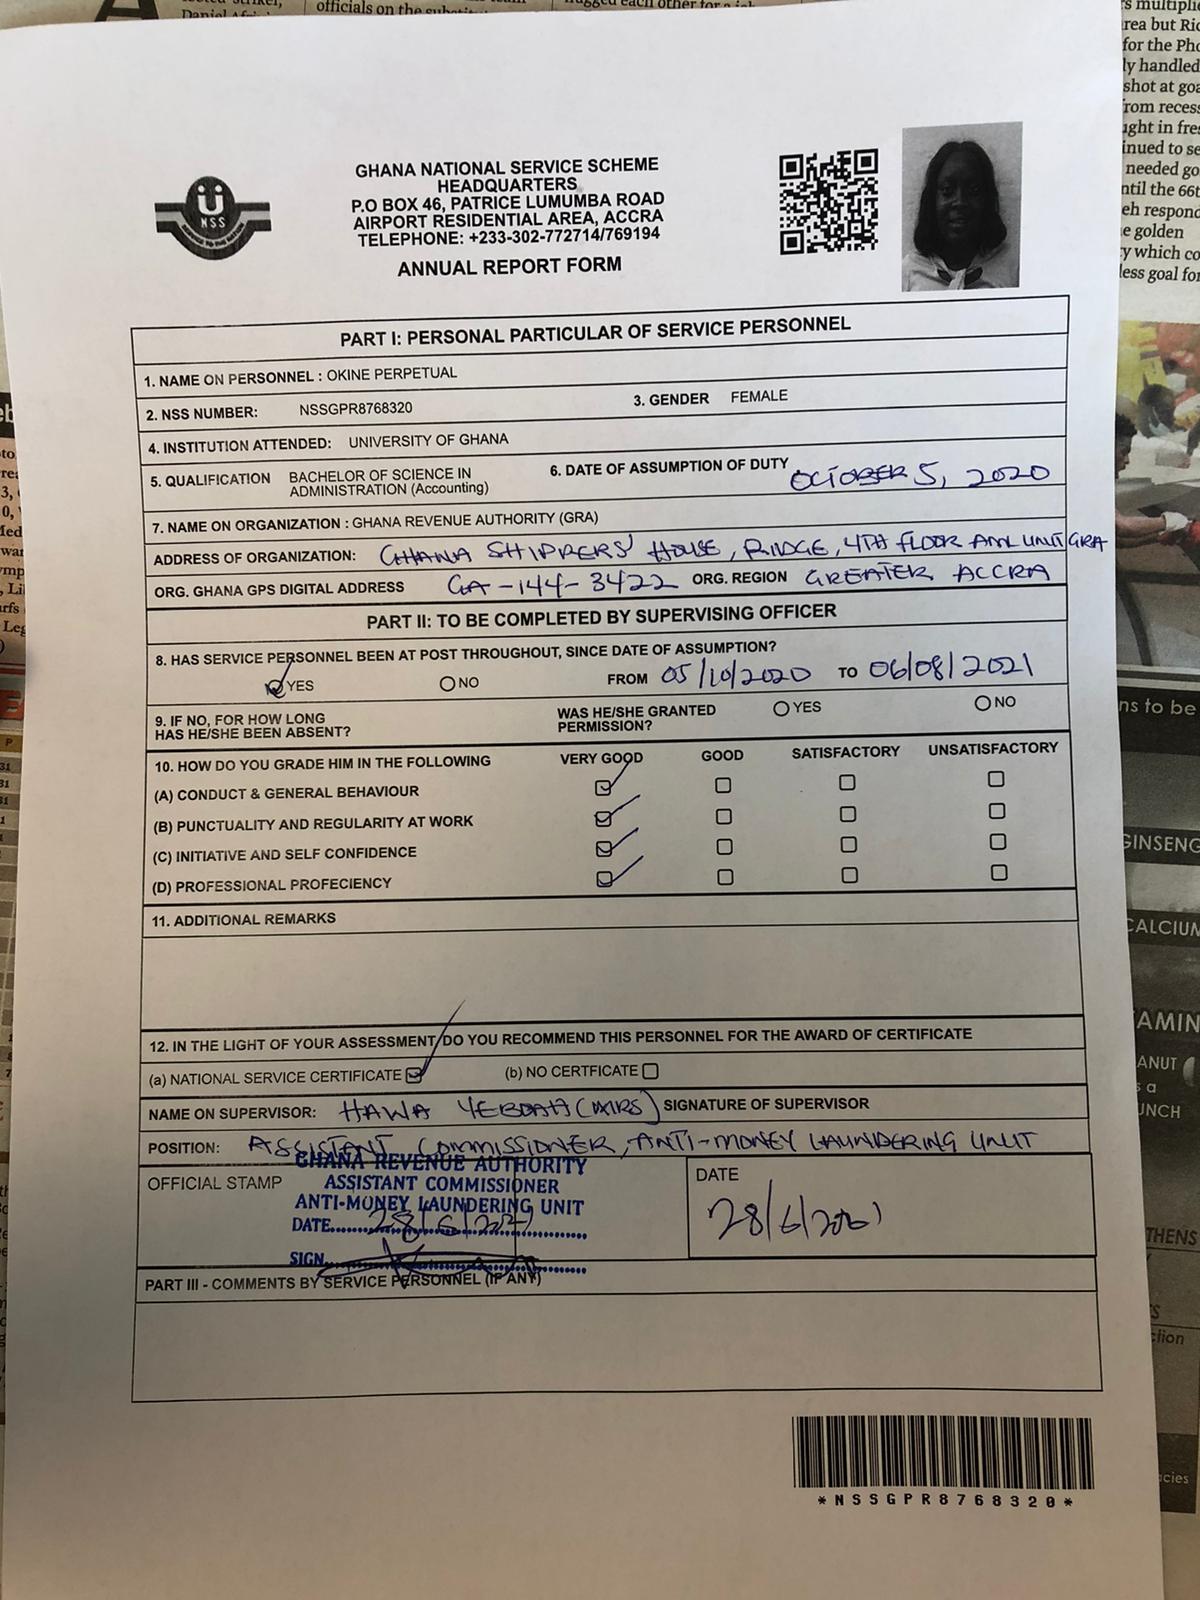 officials on the
GHANA NATIONAL SERVICE SCHEME
HEADQUARTERS
P.O BOX 46, PATRICE LUMUMBA ROAD
AIRPORT RESIDENTIAL AREA, ACCRA
TELEPHONE: +233-302-772714/769194
ANNUAL REPORT FORM
NSS
PART I: PERSONAL PARTICULAR OF SERVICE PERSONNEL
1. NAME ON PERSONNEL : OKINE PERPETUAL
2. NSS NUMBER: NSSGPR8768320 3. GENDER FEMALE
4. INSTITUTION ATTENDED: UNIVERSITY OF GHANA
5. QUALIFICATION BACHELOR OF SCIENCE IN
ADMINISTRATION (Accounting)
6. DATE OF ASSUMPTION OF DUTY OCTOBER 5, 2020
7. NAME ON ORGANIZATION : GHANA REVENUE AUTHORITY (GRA)
ADDRESS OF ORGANIZATION: GHANA SHIPPERS' HOUSE, RIDGE, 4TH FLOOR AML UNIT GRA
ORG. GHANA GPS DIGITAL ADDRESS GA-144-3422 ORG. REGION GREATER ACCRA
PART II: TO BE COMPLETED BY SUPERVISING OFFICER
8. HAS SERVICE PERSONNEL BEEN AT POST THROUGHOUT, SINCE DATE OF ASSUMPTION?
YES NO FROM 05/10/2020 TO 06/08/2021
9. IF NO, FOR HOW LONG
HAS HE/SHE BEEN ABSENT?
WAS HE/SHE GRANTED
PERMISSION?
YES NO
10. HOW DO YOU GRADE HIM IN THE FOLLOWING VERY GOOD GOOD SATISFACTORY UNSATISFACTORY
(A) CONDUCT & GENERAL BEHAVIOUR
(B) PUNCTUALITY AND REGULARITY AT WORK
(C) INITIATIVE AND SELF CONFIDENCE
(D) PROFESSIONAL PROFECIENCY
11. ADDITIONAL REMARKS
12. IN THE LIGHT OF YOUR ASSESSMENT, DO YOU RECOMMEND THIS PERSONNEL FOR THE AWARD OF CERTIFICATE
(a) NATIONAL SERVICE CERTIFICATE (b) NO CERTFICATE
NAME ON SUPERVISOR: HAWA YEBOAH (MRS) SIGNATURE OF SUPERVISOR
POSITION: ASSISTANT COMMISSIONER, ANTI-MONEY LAUNDERING UNIT
OFFICIAL STAMP
GHANA REVENUE AUTHORITY
ASSISTANT COMMISSIONER
ANTI-MONEY LAUNDERING UNIT
DATE 28/6/2021
SIGN
DATE
28/6/2021
PART III - COMMENTS BY SERVICE PERSONNEL (IF ANY)
*NSSGPR8768320*